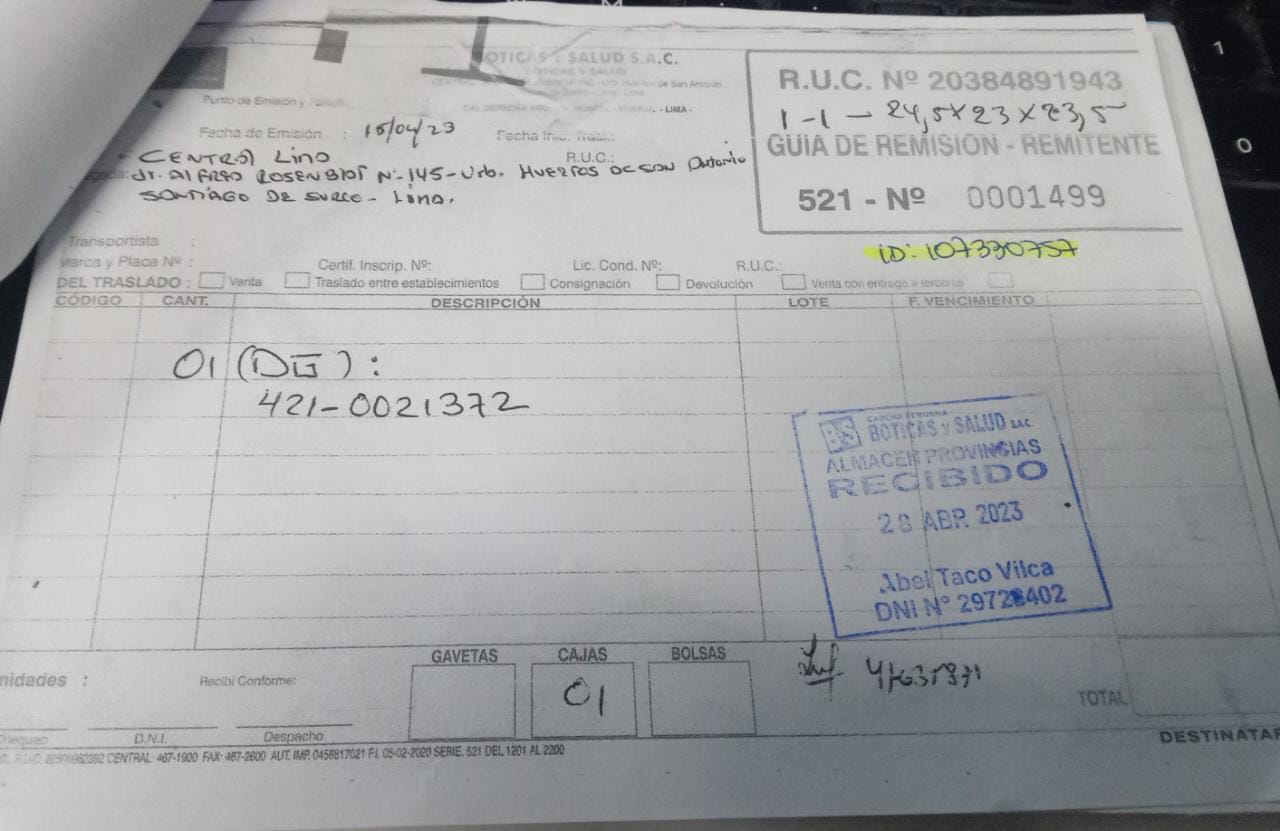 BOTICAS Y SALUD S.A.C.
BOTICAS Y SALUD
Huertos de San Antonio
LIMA
R.U.C. Nº 20384891943
1-1- 24,5x23x23,5
GUIA DE REMISION - REMITENTE
521 - Nº 0001499
ID: 107330757
Punto de Emisión y
Fecha de Emisión : 15/04/23 Fecha Inic. Trasl.:
CENTRAL Lima R.U.C.:
Jr. Alfredo ROSENBLAT Nº 145 - Urb. HUERTOS DE SAN Antonio
SANTIAGO DE SURCO - Lima.
Transportista :
Marca y Placa Nº : Certif. Inscrip. Nº: Lic. Cond. Nº: R.U.C.:
DEL TRASLADO : Venta Traslado entre establecimientos Consignación Devolución Venta con entrega a terceros
CÓDIGO CANT. DESCRIPCIÓN LOTE F. VENCIMIENTO
01 (DG):
421-0021372
BS CADENA PERUANA
BOTICAS y SALUD SAC.
ALMACEN PROVINCIAS
RECIBIDO
28 ABR 2023
Abel Taco Vilca
DNI Nº 29728402
GAVETAS CAJAS BOLSAS
01
nidades : Recibí Conforme:
TOTAL
Chequeo D.N.I. Despacho
DESTINATAR
CENTRAL: 467-1900 FAX: 467-2600 AUT. IMP. 0458817021 F.I. 05-02-2020 SERIE. 521 DEL 1201 AL 2200